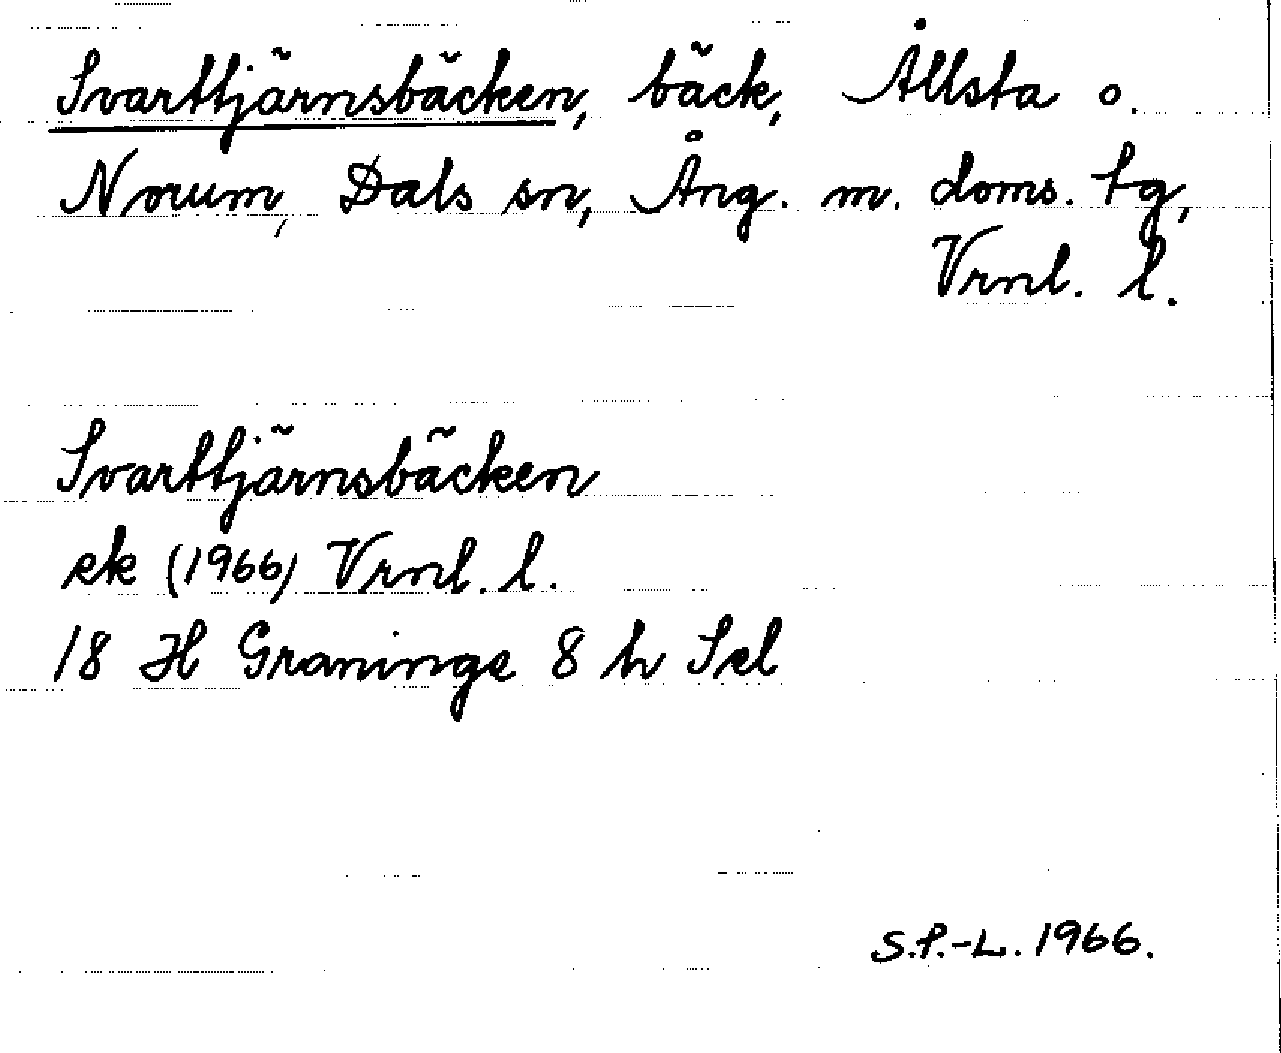 Svarttjärnsbäcken, bäck, Ållsta o.
Norum, Dals sn, Ång. m. doms. tg,
Vrnl. l.
Svarttjärnsbäcken
ek (1966) Vrnl. l.
18 H Graninge 8 h Sel
S.P.-L. 1966.